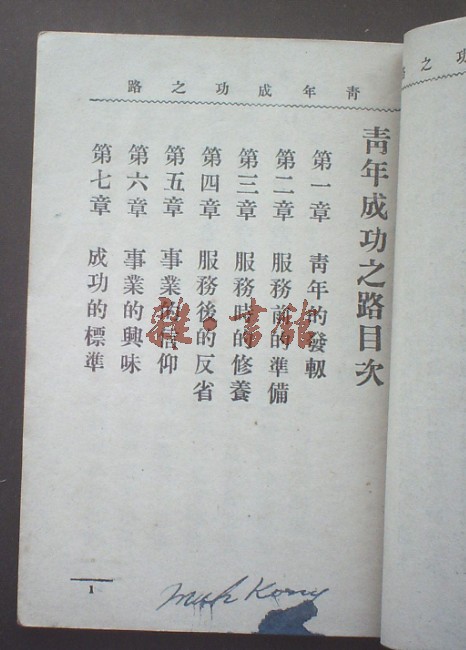 青年成功之路
青年成功之路目次
第一章　青年的發軔
第二章　服務前的準備
第三章　服務時的修養
第四章　服務後的反省
第五章　事業的信仰
第六章　事業的興味
第七章　成功的標準
1
雜·書館
功之